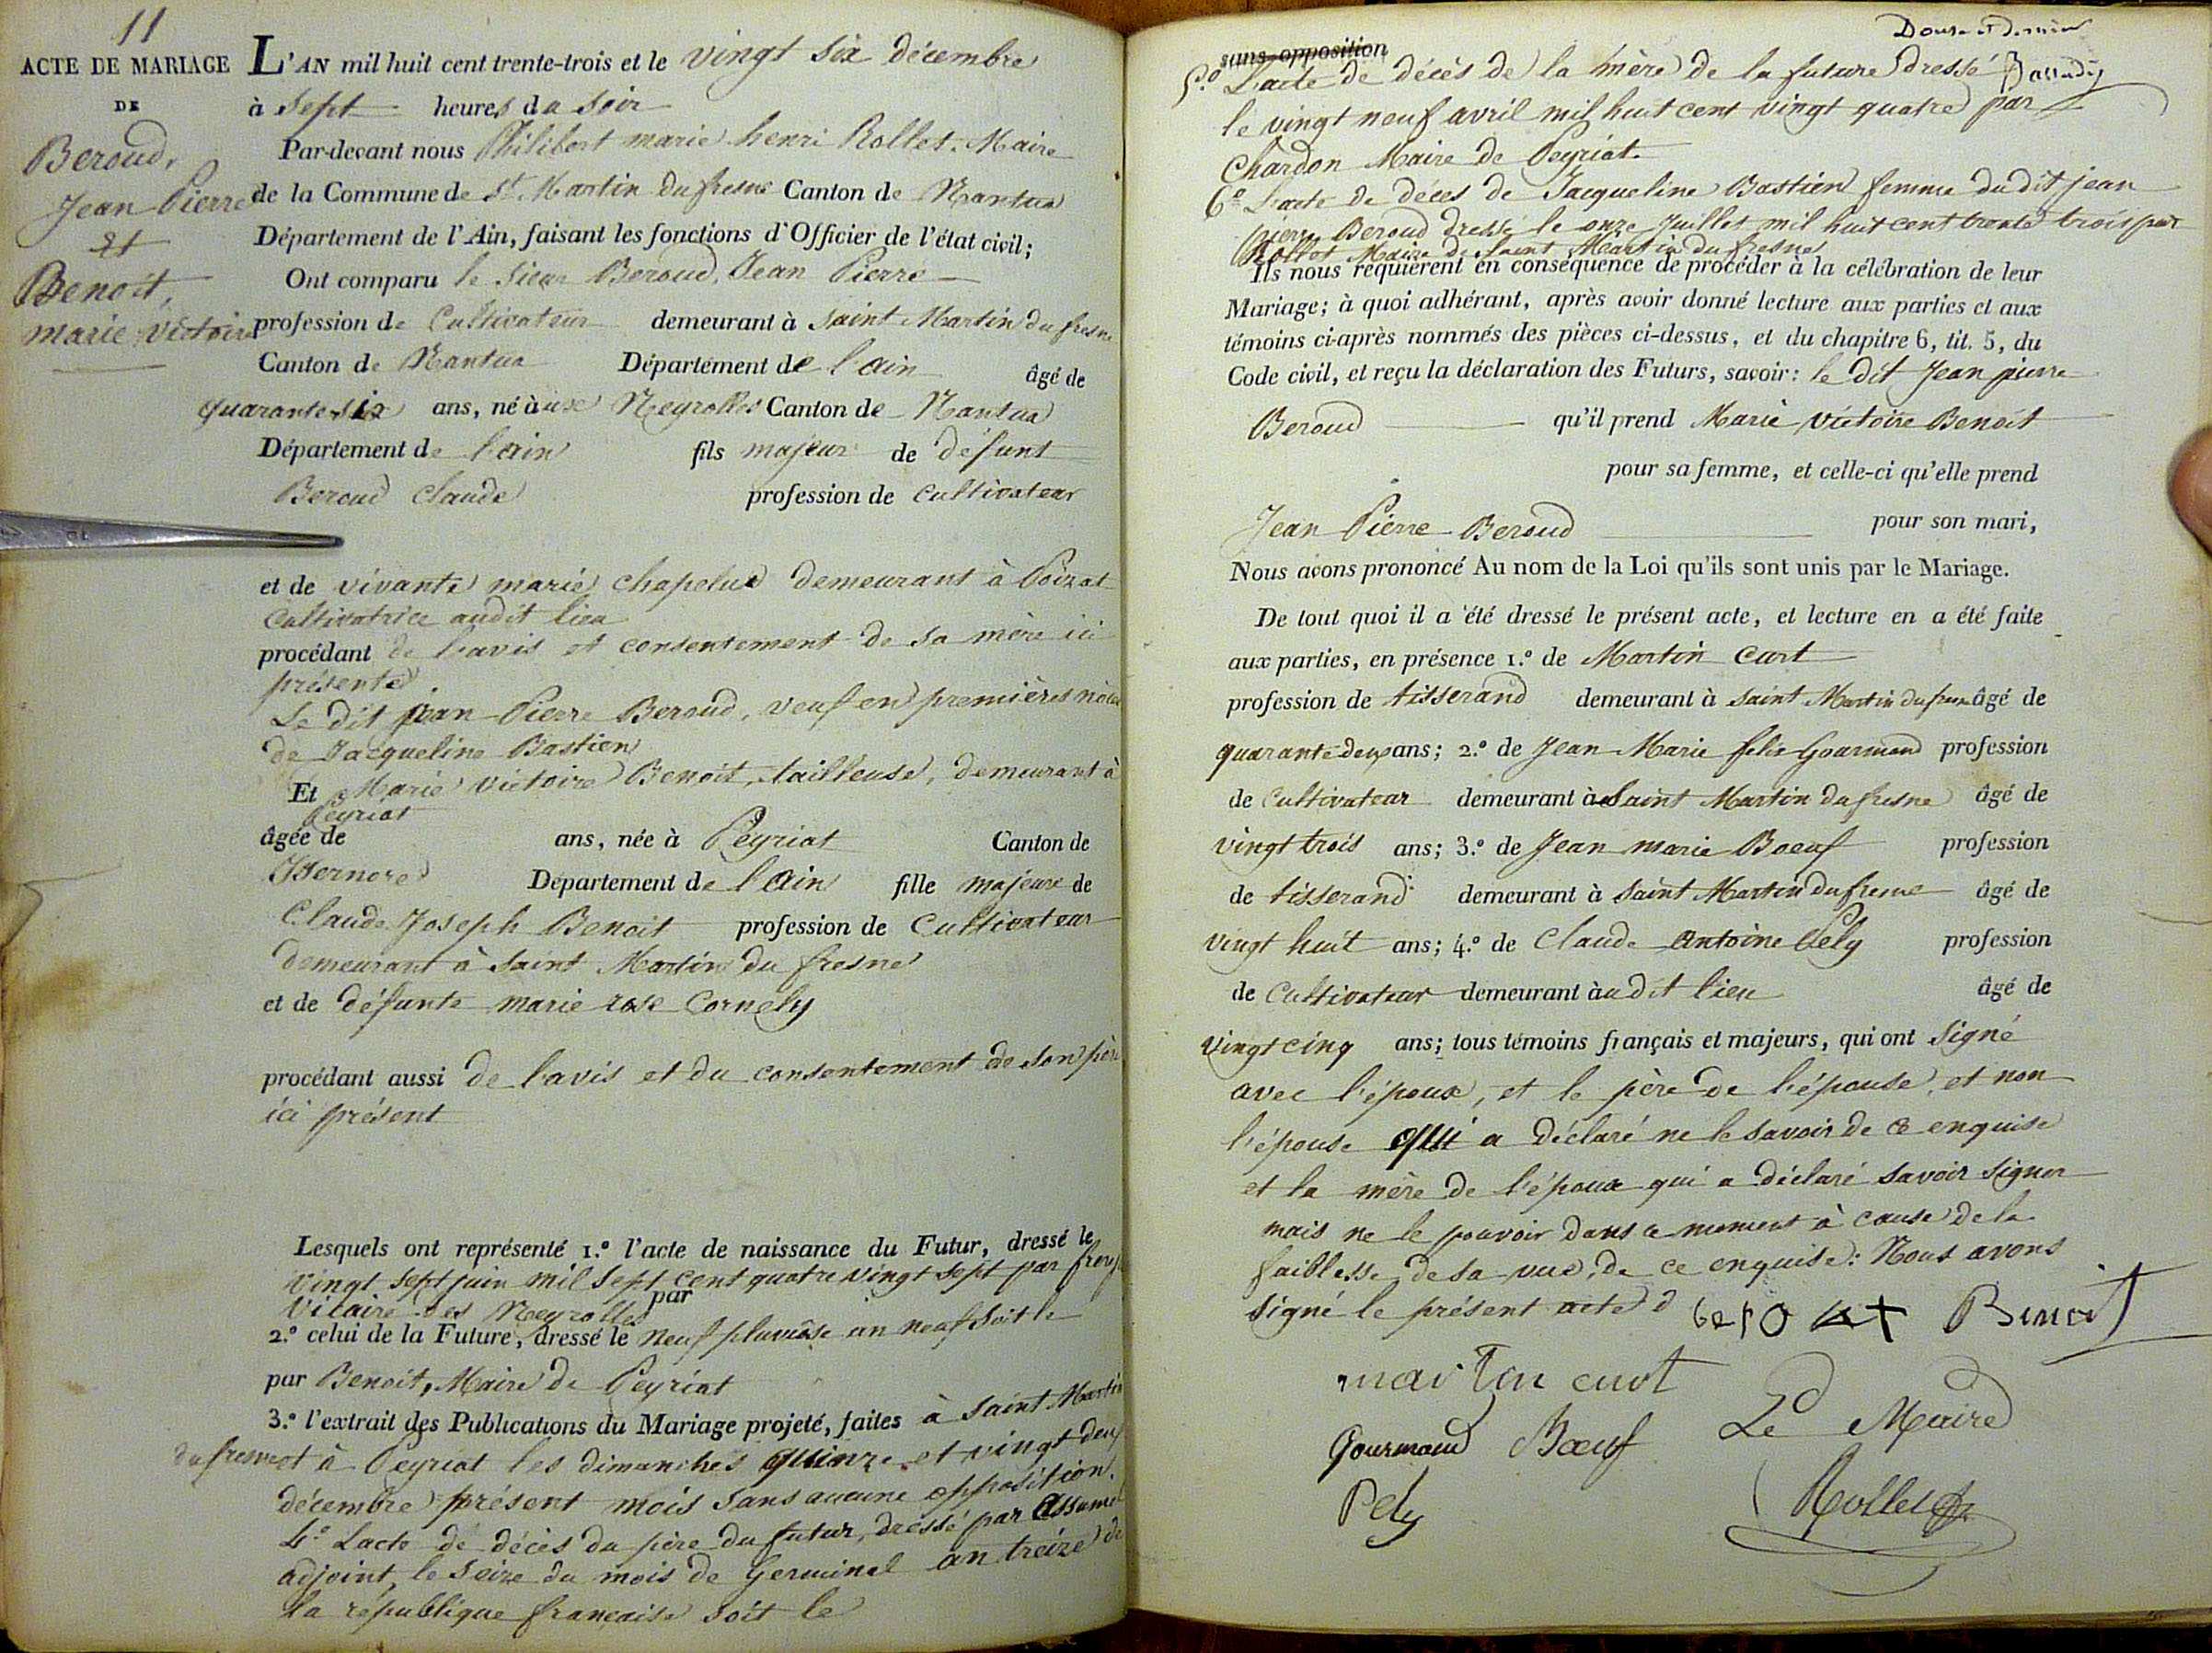 11
ACTE DE MARIAGE
DE
Beroud,
Jean Pierre
Et
Benoit,
marie victoire
L'AN mil huit cent trente-trois et le vingt six décembre
à Sept heures du Soir
Par-devant nous Philibert marie henri Rollet. Maire
de la Commune de St. Martin du fresne Canton de Nantua
Département de l'Ain, faisant les fonctions d'Officier de l'état civil;
Ont comparu le Sieur Beroud, Jean Pierre
profession de Cultivateur demeurant à saint Martin du fresne
Canton de Nantua Département de l'ain âgé de
quarante six ans, né à ux Neyrolles Canton de Nantua
Département de l'ain fils majeur de défunt
Beroud Claude profession de Cultivateur
et de vivante marie chapelux demeurant à Poizat
Cultivatrice audit lieu
procédant de l'avis et consentement de sa mère ici
présente.
Le dit jean Pierre Beroud, veuf en premières nôces
de Jacqueline Bastien
Et Marie victoire Benoit, tailleuse, demeurant à
Peyriat
âgée de ans, née à Peyriat Canton de
Isernore Département de l'ain fille majeure de
Claude Joseph Benoit profession de Cultivateur
demeurant à saint Martin du fresne
et de défunte marie rose Cornely
procédant aussi de l'avis et du consentement de son père
ici présent
Lesquels ont représenté 1.º l'acte de naissance du Futur, dressé le
vingt sept juin mil sept cent quatre vingt sept par
Vicaire des Neyrolles par
2.º celui de la Future, dressé le neuf pluviôse an neuf soit le
par Benoit, Maire de Peyriat
3.º l'extrait des Publications du Mariage projeté, faites à saint Martin
du fresne et à Peyriat les dimanches quinze et vingt deux
décembre présent mois sans aucune opposition.
4.º L'acte de décès du père du futur, dressé par
adjoint, le seize du mois de Germinal an treize de
la république française soit le
sans opposition
5.º L'acte de décès de la mère de la future dressé
le vingt neuf avril mil huit cent vingt quatre par
Chardon Maire de Peyriat.
6.º L'acte de décès de Jacqueline Bastien femme du dit jean
pierre Beroud dressé le onze Juillet mil huit cent trente trois par
Rollet Maire de saint Martin du fresne
Ils nous requièrent en conséquence de procéder à la célébration de leur
Mariage; à quoi adhérant, après avoir donné lecture aux parties et aux
témoins ci-après nommés des pièces ci-dessus, et du chapitre 6, tit. 5, du
Code civil, et reçu la déclaration des Futurs, savoir: le dit Jean pierre
Beroud qu'il prend Marie victoire Benoit
pour sa femme, et celle-ci qu'elle prend
Jean Pierre Beroud pour son mari,
Nous avons prononcé Au nom de la Loi qu'ils sont unis par le Mariage.
De tout quoi il a été dressé le présent acte, et lecture en a été faite
aux parties, en présence 1.º de Martin Curt
profession de tisserand demeurant à saint Martin du fresne âgé de
quarante deux ans; 2.º de Jean Marie felix Gourmand profession
de Cultivateur demeurant à Saint Martin du fresne âgé de
vingt trois ans; 3.º de Jean marie Boeuf profession
de tisserand demeurant à saint Martin du fresne âgé de
vingt huit ans; 4.º de Claude Antoine Pely profession
de Cultivateur demeurant audit lieu âgé de
vingt cinq ans; tous témoins français et majeurs, qui ont Signé
avec l'époux, et le père de l'épouse, et non
l'épouse qui a déclaré ne le savoir de ce enquise
et la mère de l'époux qui a déclaré savoir signer
mais ne le pouvoir dans ce moment à cause de la
faiblesse de sa vue, de ce enquise: Nous avons
signé le présent acte
Benoit
martin curt
Gourmand Boeuf Le Maire
Pely Rollet